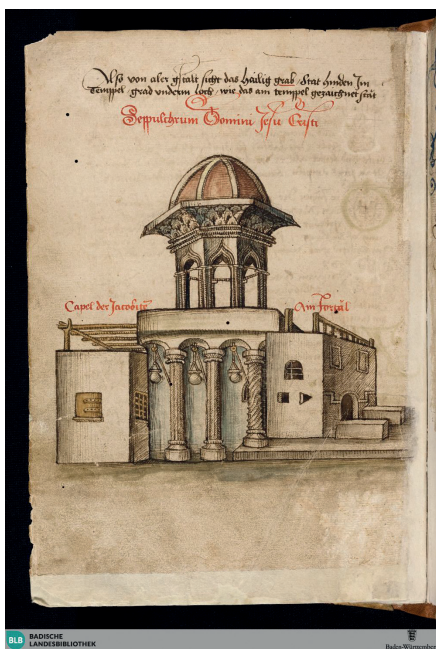 Also von aler gstalt sicht das hailig grab Stat hinden Jm
Temppel grad vnderm loch wie das am temppel gezaichnet stat
Seppulchrum Domini Jesu Cristi
Capel der Jacobity
Am Portal
BLB
BADISCHE
LANDESBIBLIOTHEK
Baden-Württemberg